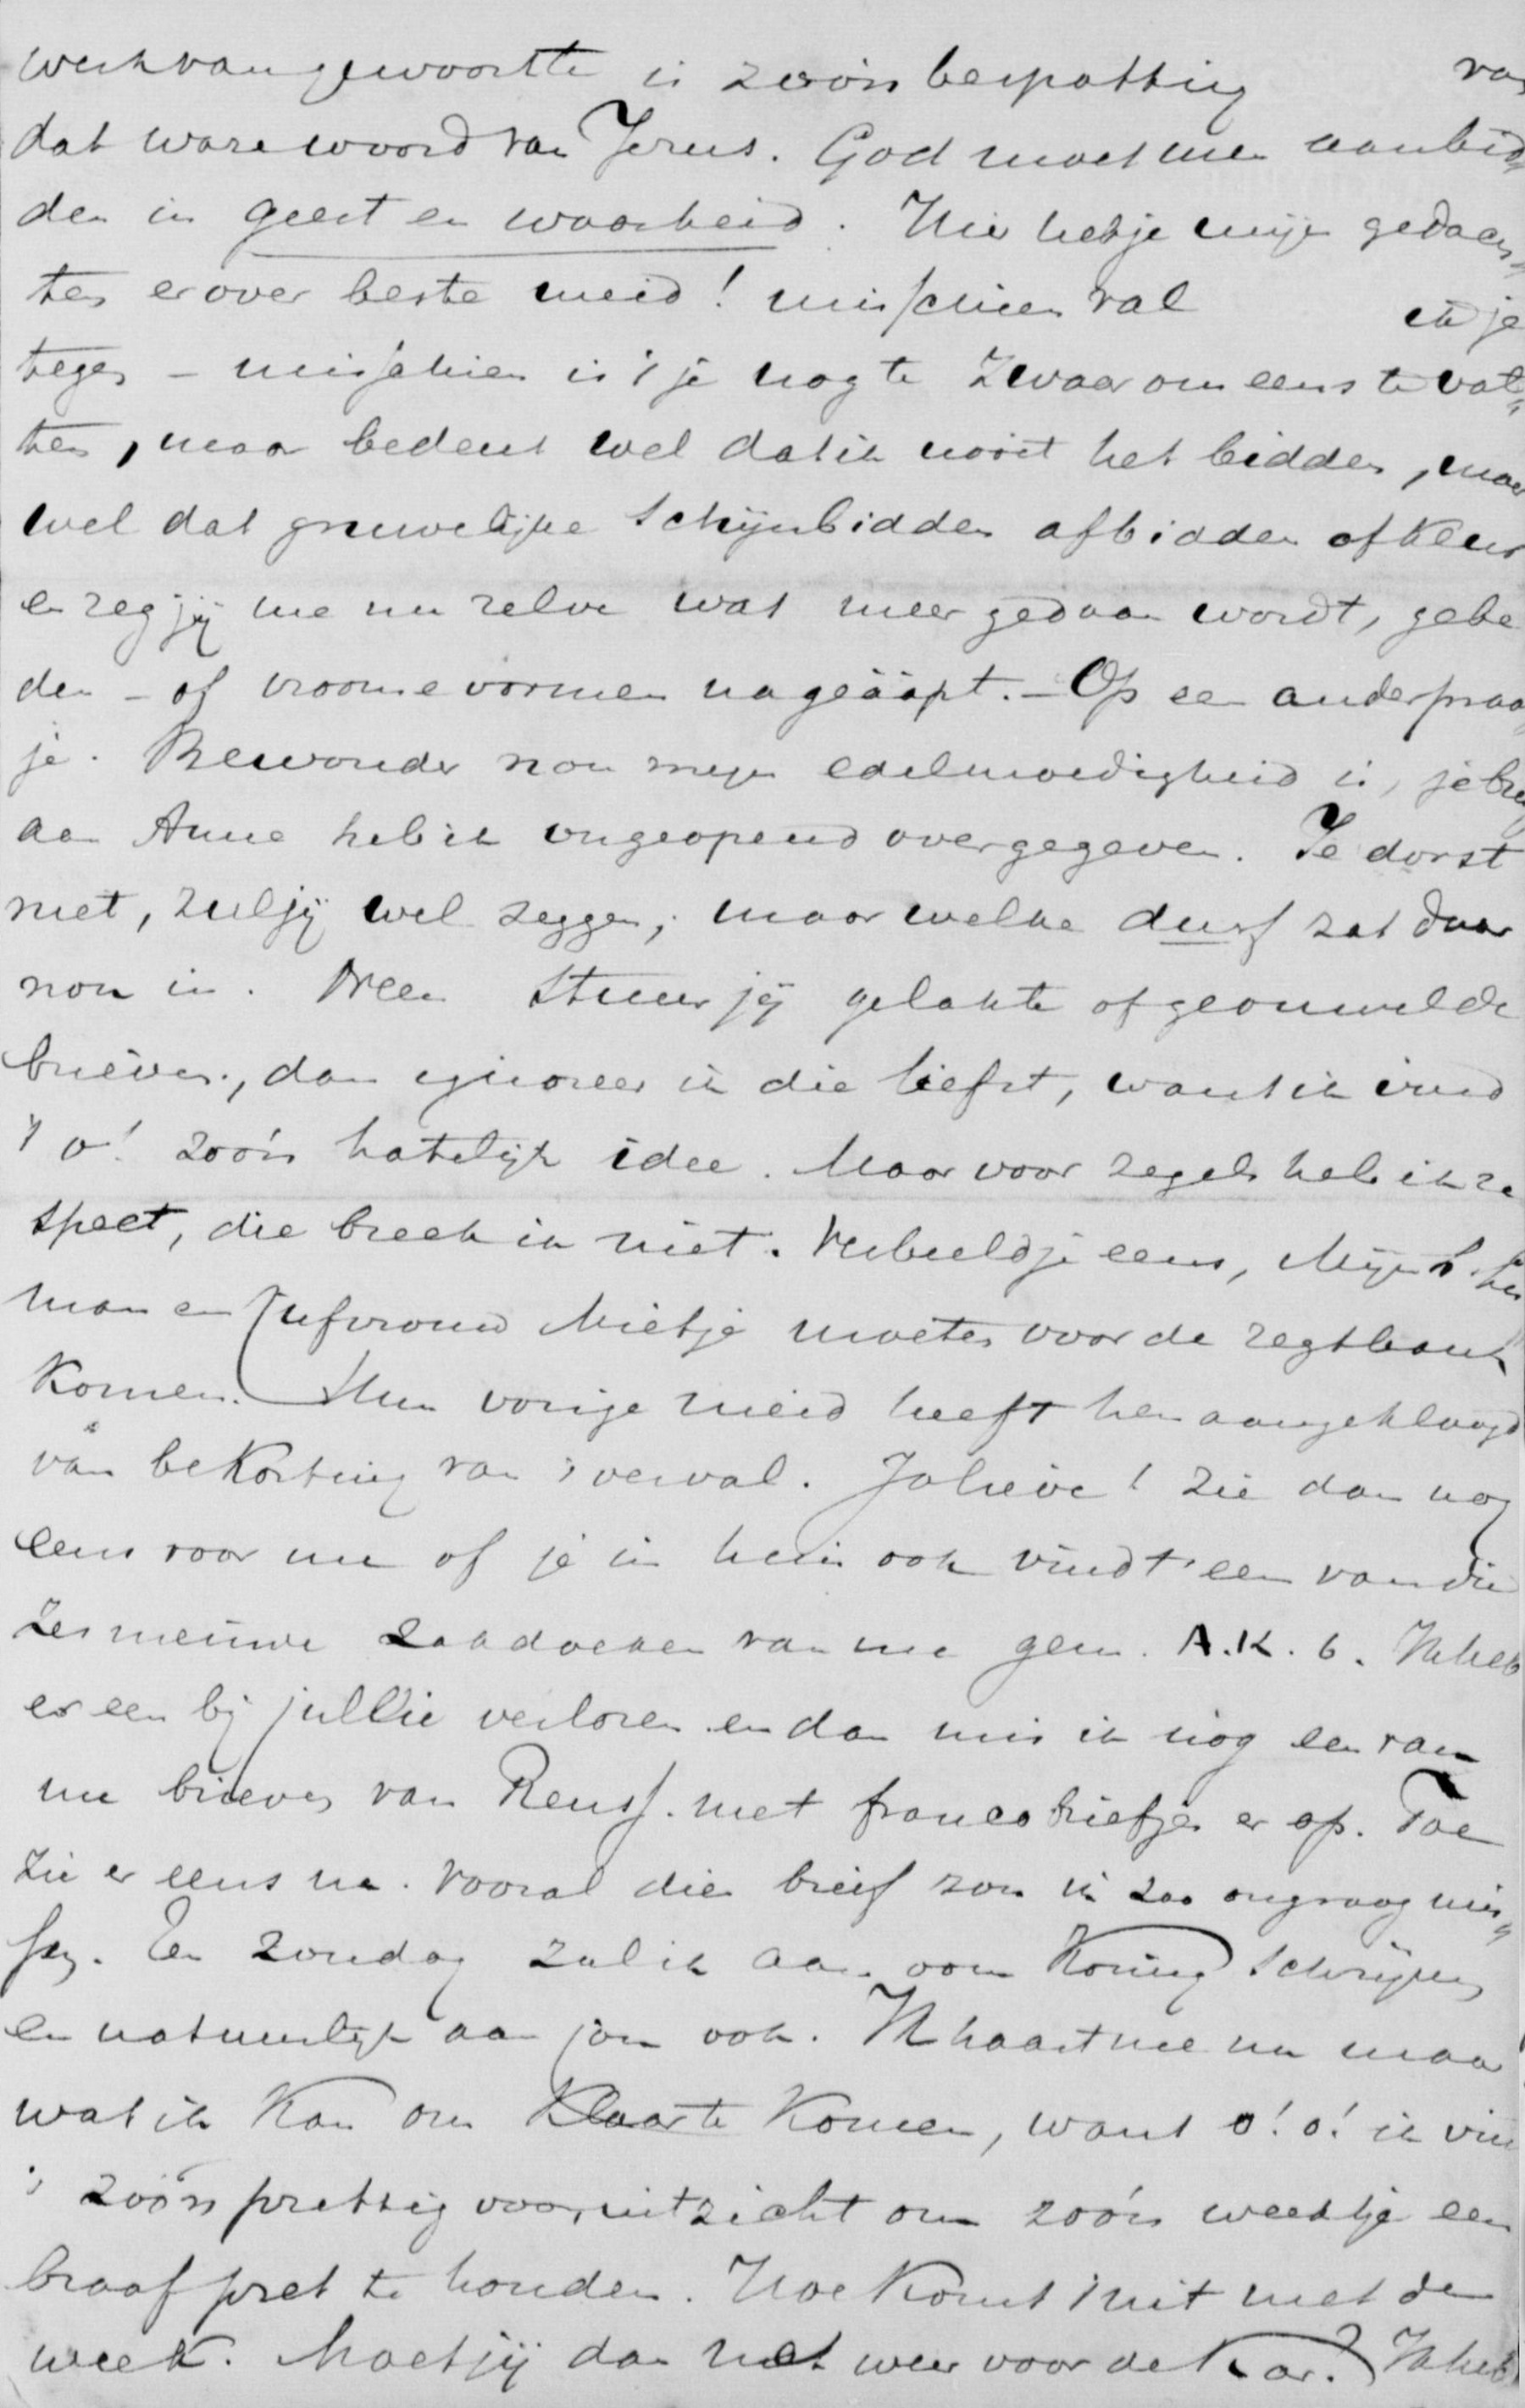 werk van gewoonte is zoo'n bespotting van
dat ware woord van Jezus. God moet men aanbid„
den in geest en waarheid. Hier heb je mijn gedach„
ten erover beste meid! misschien val ik je
tegen – misschien is 't je nog te zwaar om eens te vat„
ten, maar bedenk wel dat ik nooit het bidden, maar
wel dat gruwelijke schijnbidden afbidden afkeur
en zeg jij me nu zelve wat meer gedaan wordt, gebe
den – of vroome vormen nageäapt. – Op een ander praat
je. Bewonder nou mijn edelmoedigheid is, je brief
aan Anna heb ik ongeopend overgegeven. Je dorst
niet, zul jij wel zeggen; maar welke durf zat daar
nou in. Neen stuur jij gelakte of geouwelde
brieven, dan ignoreer ik die liefst, want ik vind
't o! zoo'n hatelijk idee. Maar voor zegels heb ik re
spect, die breek ik niet. Verbeeld je eens, Mijnh.
man en Jufvrouw Mietje moeten voor de regtbank
komen. Hun vorige meid heeft hen aangeklaagd
van bekorting van 't verval. Jalieve! zie dan nog
eens voor me of je in huis ook vindt een van die
zes nieuwe zakdoeken van me gem. A.K. 6. Ik heb
er een bij jullie verloren en dan mis ik nog een van
me brieven van Renss. met francobriefjes er op. Toe
zie er eens na. Vooral die brief zou ik zoo ongraag mis„
sen. En zondag zal ik aan oom Koning schrijven
en natuurlijk aan jou ook. Ik haast me nu maar
wat ik kan om klaar te komen, want o! o! ik vin
't zoo'n prettig vooruitzicht om zoo'n weekje een
braaf pret te houden. Hoe komt 't uit met de
week. Moet jij dan net weer voor de kar? Ik heb